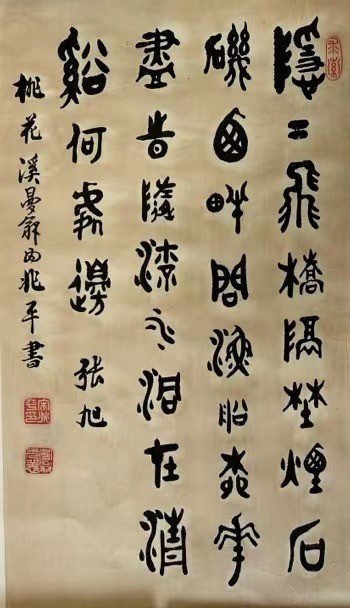 隱〻飛橋隔埜煙石
磯西畔問漁船桃花
盡日隨流水洞在清
谿何處邊 張旭
桃花溪兆平書